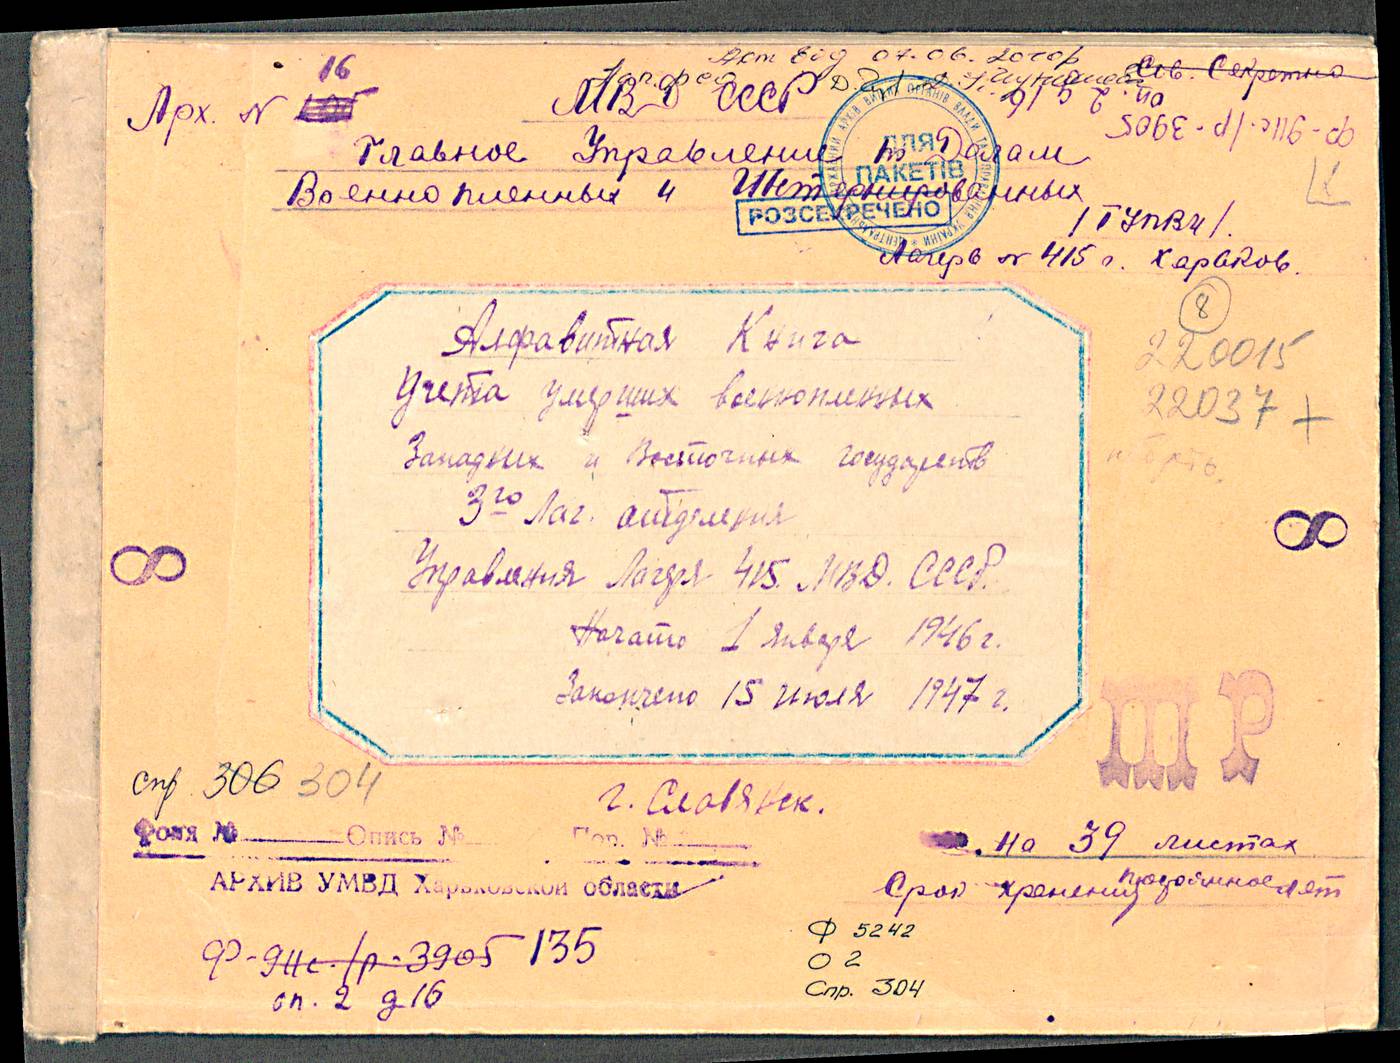 Акт б/д 07.06.2010р
Сов. Секретно
16
Арх. N 105
МВД СССР
оп. 2 д 16
ф-9пс/р-3905
Главное Управление по Делам
Военнопленных и Интернированных
ДЛЯ
ПАКЕТІВ
РОЗСЕКРЕЧЕНО
/ГУПВИ/.
Лагерь N 415 г. Харьков.
8
220015
22037 +
Алфавитная Книга
Учета умерших военнопленных
Западных и Восточных государств
3го Лаг. отделения
Управления Лагеря 415 МВД. СССР.
Начато 1 января 1946 г.
Закончено 15 июля 1947 г.
8
8
ПР
спр 306 304
г. Славянск.
Фонд № Опись № Пор. №
на 39 листах
АРХИВ УМВД Харьковской области
Срок хранения постоянное лет
Ф-9пс./р-3905 135
оп. 2 д 16
Ф 5242
О 2
Спр. 304